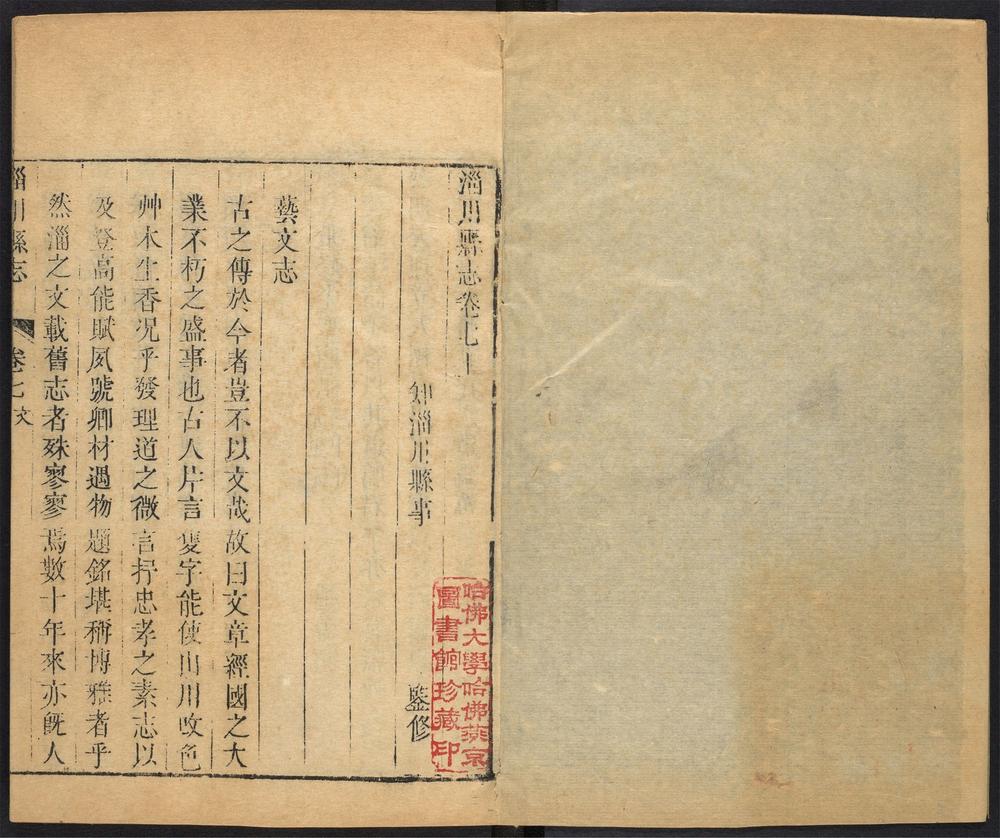 淄川縣志卷七上
知淄川縣事
鑒修
藝文志
古之傳於今者豈不以文哉故曰文章經國之大
業不朽之盛事也古人片言隻字能使山川改色
艸木生香况乎發理道之微言抒忠孝之素志以
及登高能賦夙號卿材遇物題銘堪稱博雅者乎
然淄之文載舊志者殊寥寥焉數十年來亦旣人
淄川縣志
卷七文
哈佛大學哈佛燕京
圖書館珍藏印